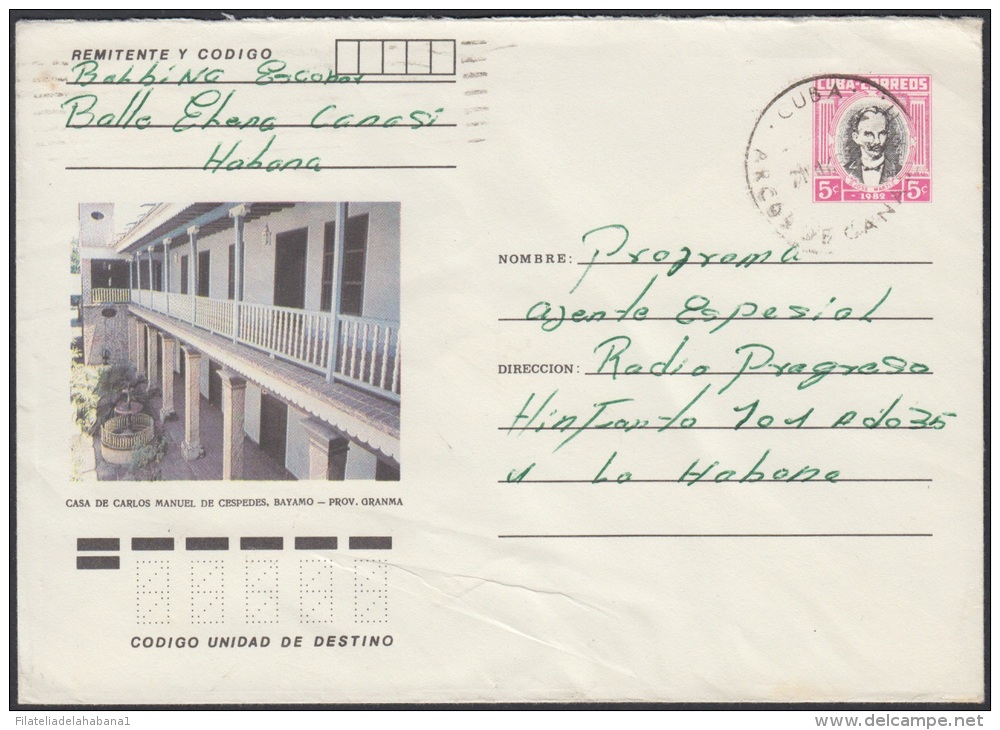 REMITENTE Y CODIGO
Balbina Escobar
Balle Elena Canasi
Habana
CUBA·CORREOS
JOSE MARTI
5¢ 1982 5¢
CUBA
ARCOS DE CANASI
NOMBRE: Programa
ajente Espesial
DIRECCION: Radio Pragreso
Hinfanta 101 Ado 35
y La Habana
CASA DE CARLOS MANUEL DE CESPEDES, BAYAMO — PROV. GRANMA
CODIGO UNIDAD DE DESTINO
Filateliadelahabana1
delcampe.net